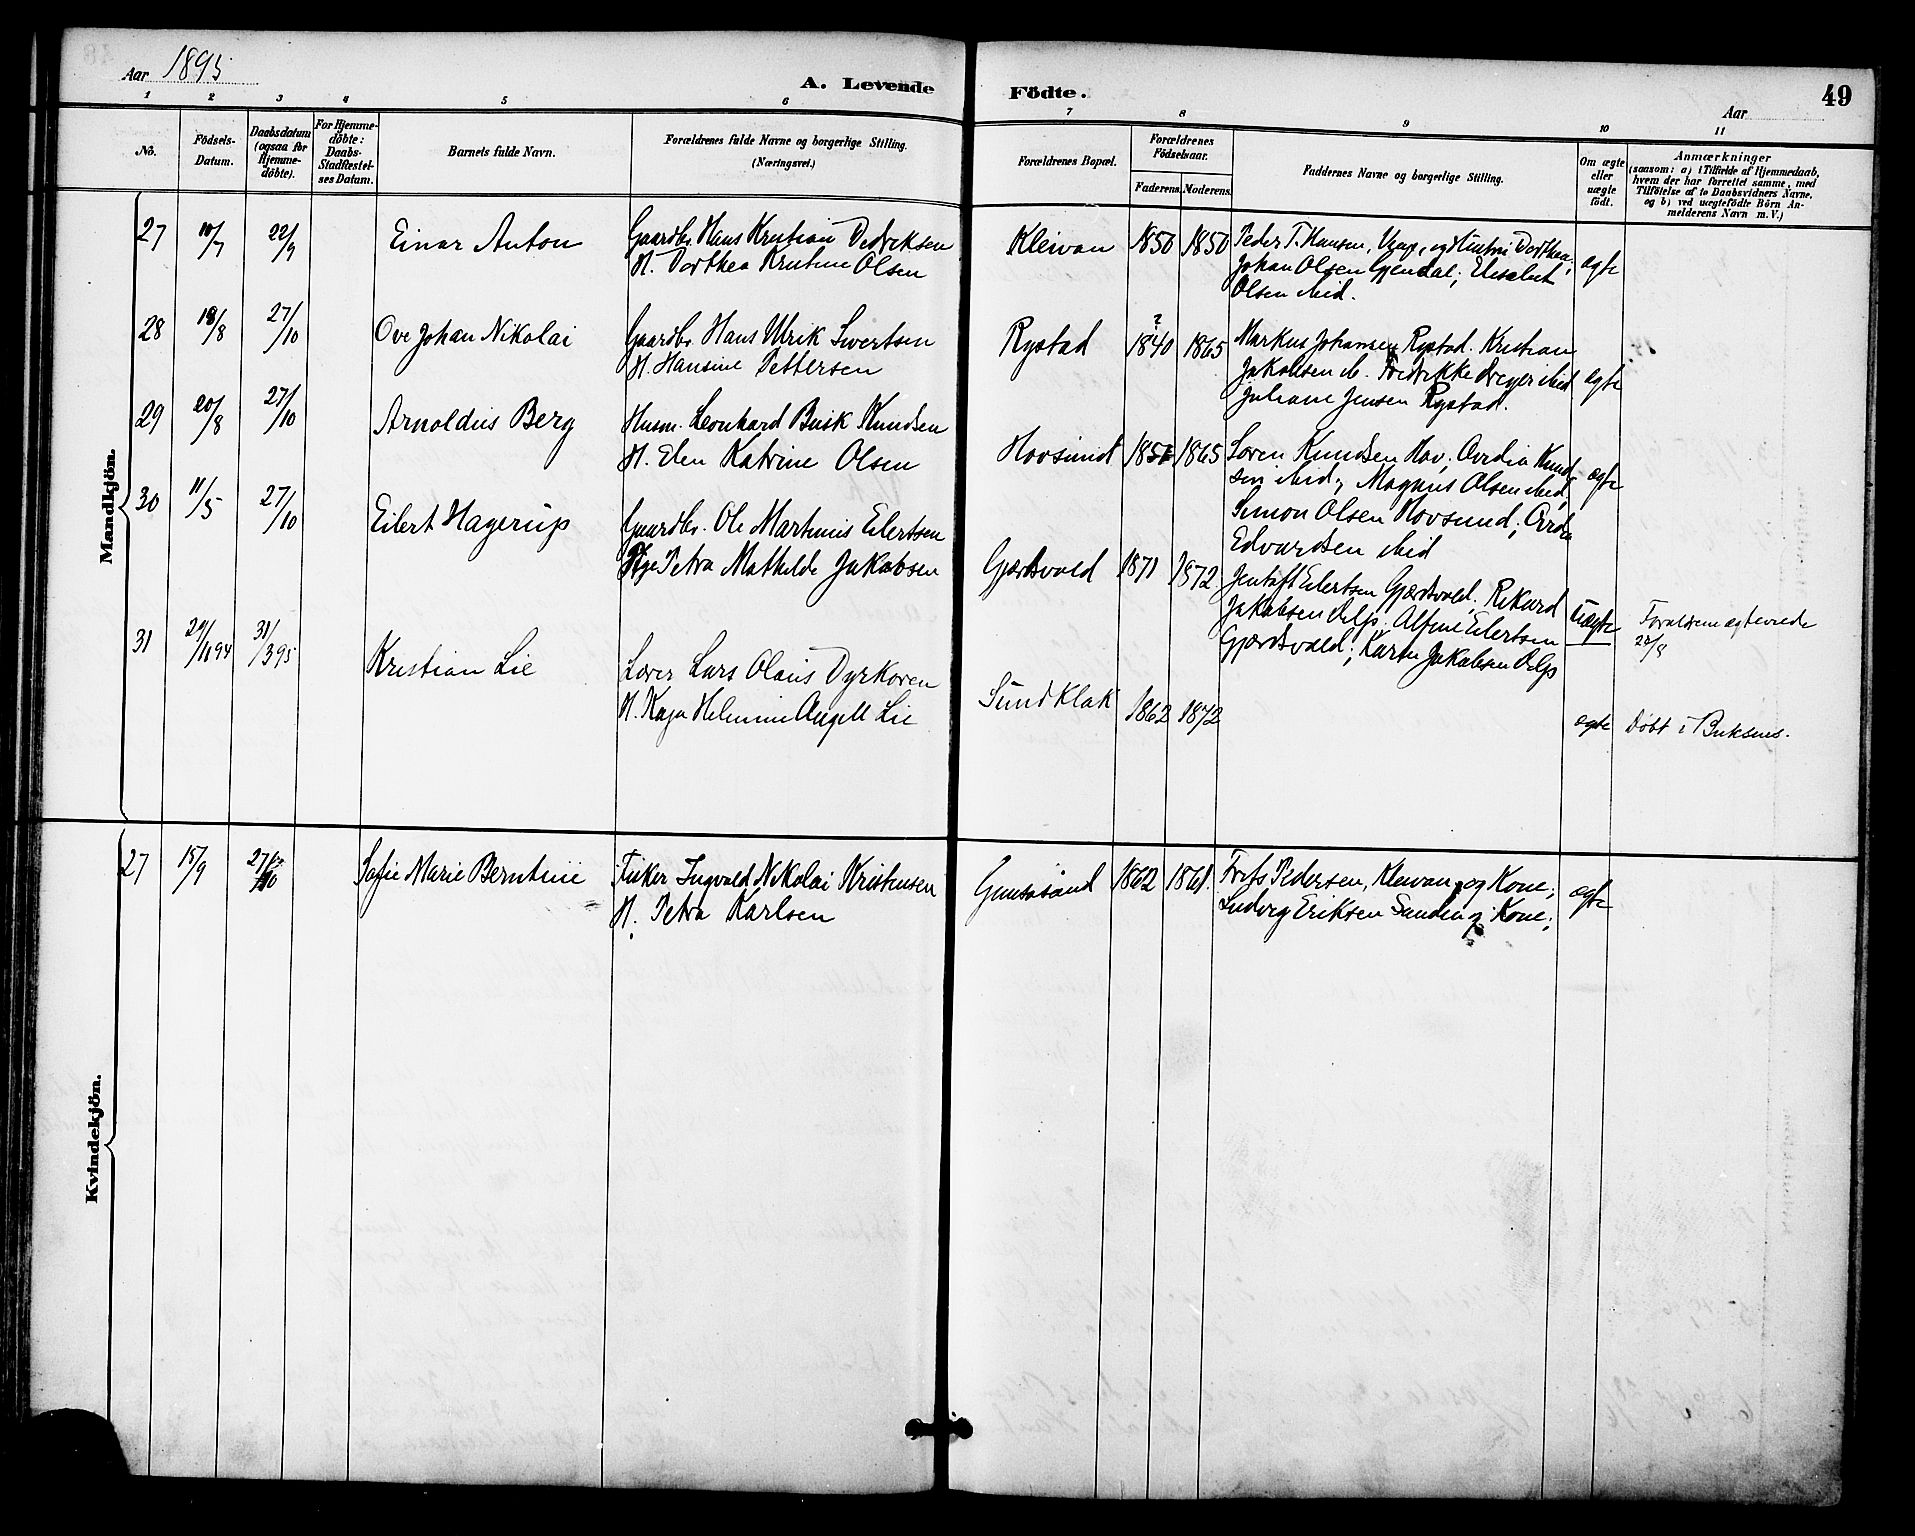 Aar 1895
A. Levende Födte.
Aar
49
1 2 3 4 5 6 7 8 9 10 11
No.
Födsels-Datum.
Daabsdatum (ogsaa for Hjemme-döbte).
For Hjemme-döbte: Daabs-Stadfæstel-ses Datum.
Barnets fulde Navn.
Forældrenes fulde Navne og borgerlige Stilling. (Næringsvei.)
Forældrenes Bopæl.
Forældrenes Födselsaar.
Faderens. Moderens.
Faddernes Navne og borgerlige Stilling.
Om ægte eller uægte födt.
Anmærkninger
(saasom: a) i Tilfælde af Hjemmedaab, hvem der har forrettet samme, med Tilföielse af to Daabsvidners Navne, og b) ved uægtefödte Börn An-melderens Navn m. V.)
Mandkjön.
27 10/7 22/9 Einar Anton
Gaardbr. Hans Kristian Dedriksen
H. Dorthea Kristine Olsen
Kleivan 1850 1850
Peder T. Hansen, og Dorthea;
Johan Olsen Gjendal; Elisabet
Olsen ibid.
ægte
28 18/8 27/10 Ove Johan Nikolai
Gaardbr. Hans Ulrik Sivertsen
H. Hansine Pettersen
Rystad ? 1840 1865
Markus Johansen Rystad. Kristian
Jakobsen ib. Fredrikke Dreyer ibid
Juliane Jensen Rystad.
ægte
29 20/8 27/10 Arnoldus Berg
Husm. Leonhard Busk Knudsen
H. Elen Katrine Olsen
Hovsund 1865
Soren Knudsen Hov; Ovedia Knud
sen ibid; Magnus Olsen ibid;
Simon Olsen Hovsund;
Edvardsen ibid
ægte
30 11/5 27/10 Eilert Hagerup
Gaardbr. Ole Martinus Eilertsen
Pige Petra Mathilde Jakobsen
Gjærdsvold 1871 1872
Jentoft Eilertsen Gjærdsvold. Rikard
Jakobsen Delp. Alfine Eilertsen
Gjærdsvold; Karen Jakobsen Delp
uægte
Foraldrene ægteviede
28/8
31 29/11 94 31/3 95 Kristian Lie
Lærer Lars Olaus Dyrkoren
H. Kaja Helmine Angell Lie
Sundklak 1862 1872
ægte Døbt i Buksnes.
Kvindekjön.
27 15/9 27/10 Sofie Marie Berntine
Fisker Ingvald Nikolai Kristensen
H. Petra Karlsen
Gimsøsand 1862 1861
Pedersen, Kleivan og Kone;
Ludvig Eriksen Sanden og Kone;
ægte